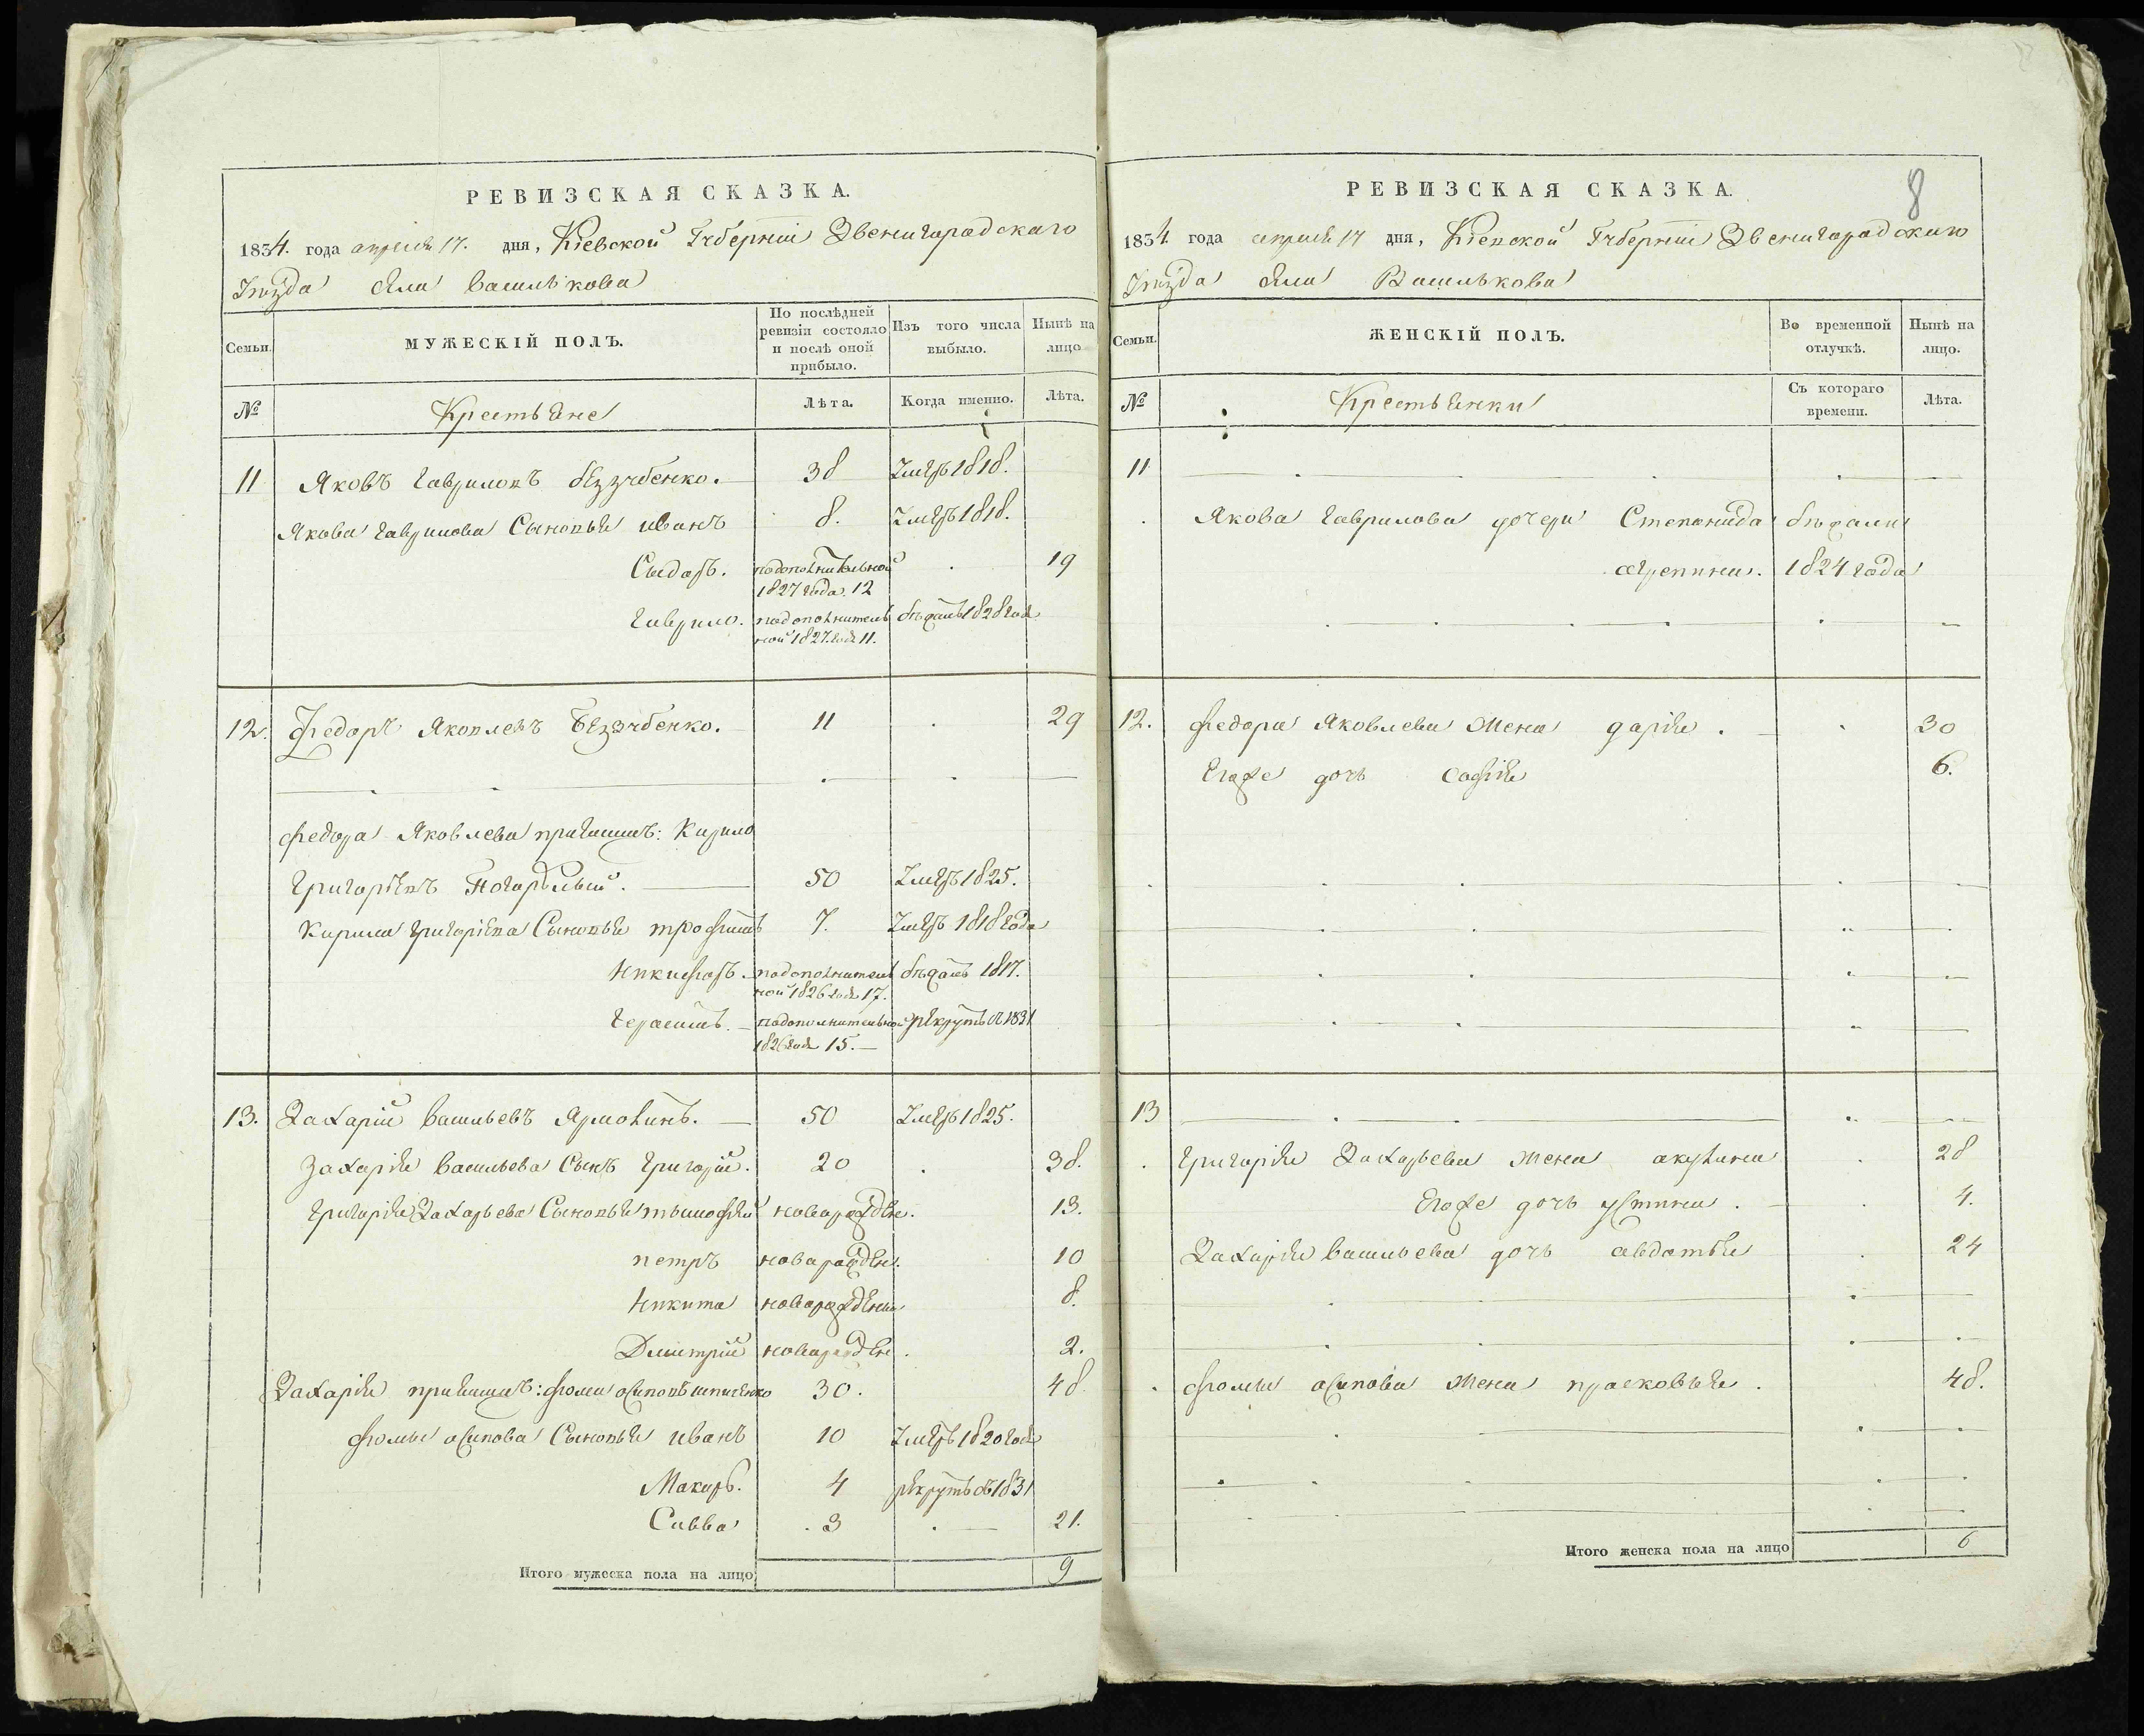 РЕВИЗСКАЯ СКАЗКА.
1834. года апреля 17. дня, Кіевской Губерніи Звенигородского
Уезда Села Василькова
Семьи.
МУЖЕСКІЙ ПОЛЪ.
По послѣдней ревизіи состояло и послѣ оной прибыло.
Изъ того числа выбыло.
Нынѣ на лицо
№
Крестьяне
Лѣта.
Когда именно.
Лѣта.
11 Яковъ Гавриловъ Беззубенко. 38 Умеръ 1818.
Якова Гаврилова Сыновья иванъ 8. Умеръ 1818.
Сидоръ. подополнительной 1827 года. 12 19
Гаврило. подополнитель ной 1827. года 11. бежалъ 1828 года
12. Федоръ Яковлевъ Беззубенко. 11 29
Федора Яковлева приимишъ: Кирило
Григорьевъ 50 Умеръ 1825.
Кирила Григоріева Сыновья трофимъ 7. Умеръ 1818 года
Никифоръ. подополнитель ной 1826 года 17. бежалъ 1817.
Герасимъ. подополнительной 1826 года 15. рекрутъ съ 1831
13. Захарій Васильевъ 50 Умеръ 1825.
Захарія Васильева Сынъ Григорій. 20 38.
Григорія Захарьева Сыновья тимофей новорожден. 13.
петръ новорожден. 10
Никита новорожденъ 8.
Дмитрій новорожден. 2.
Захарія приимишъ: фома осиповъ 30. 48.
фомы осипова Сыновья иванъ 10 Умеръ 1820 года
Макаръ. 4 рекрутъ съ 1831
Савва 3 21.
Итого мужеска пола на лицо 9
8
РЕВИЗСКАЯ СКАЗКА.
1834. года апреля 17 дня, Кіевской Губерніи Звенигородского
Уезда Села Василькова
Семьи.
ЖЕНСКІЙ ПОЛЪ.
Во временной отлучкѣ.
Нынѣ на лицо.
№
Крестьянки
Съ котораго времени.
Лѣта.
11
Якова Гаврилова дочери Степанида бежали
агрепина. 1824 года
12. Федора Яковлева жена дарія. 30
Егоже дочь софія 6.
13
Григорія Захарьева жена акулина 28
Егоже дочь устина. 4.
Захарія Васильева дочь авдотья 24
фомы осипова жена прасковья. 48.
Итого женска пола на лицо 6